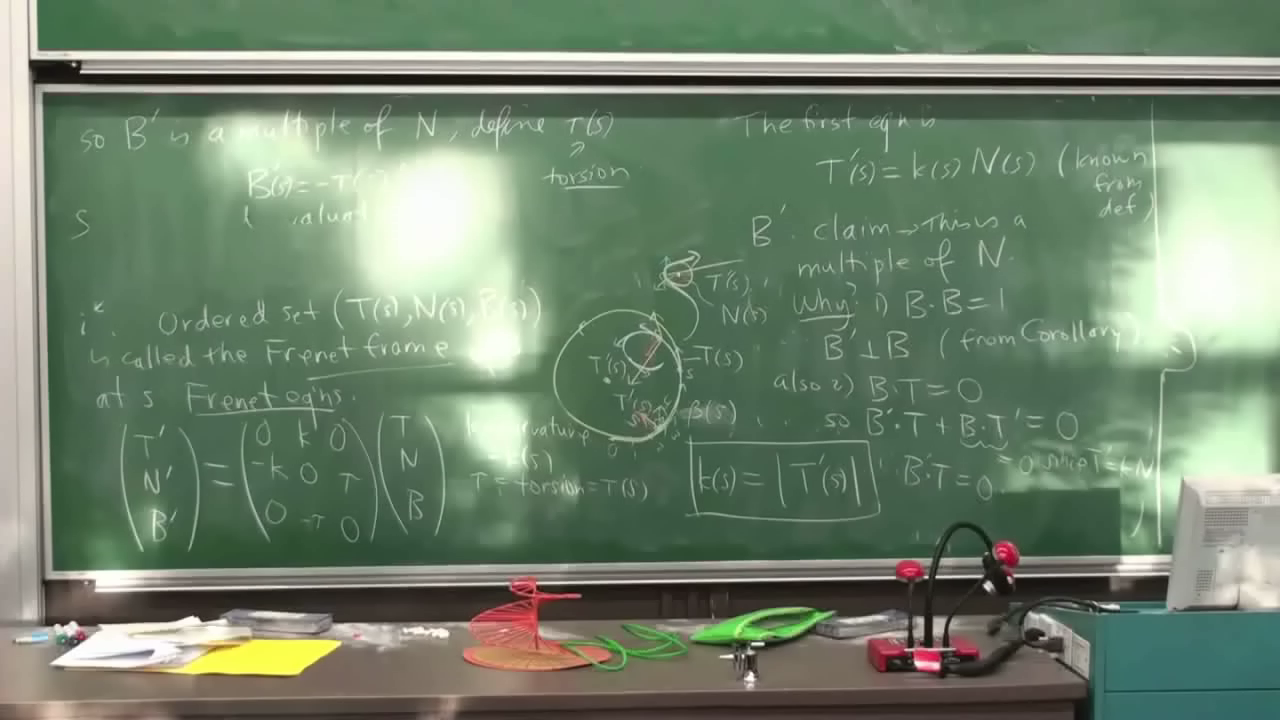 so B' is a multiple of N, define τ(s)
torsion
B'(s) = -τ(
S
Ordered set (T(s), N(s), B(s))
is called the Frenet frame
at s Frenet eqns.
T' 0 k 0 T
N' = -k 0 τ N
B' 0 -τ 0 B
curvature
= k(s)
τ = torsion = τ(s)
T'(s)
N(s)
T(s)
T'(s)
T'(s)
β(s)
k(s) = |T'(s)|
The first eqn is
T'(s) = k(s) N(s) (known
from
def)
B': claim → This is a
multiple of N.
Why? 1) B·B = 1
B' ⊥ B (from Corollary)
also 2) B·T = 0
so B'·T + B·T' = 0
= 0 since T' = kN
B'·T = 0